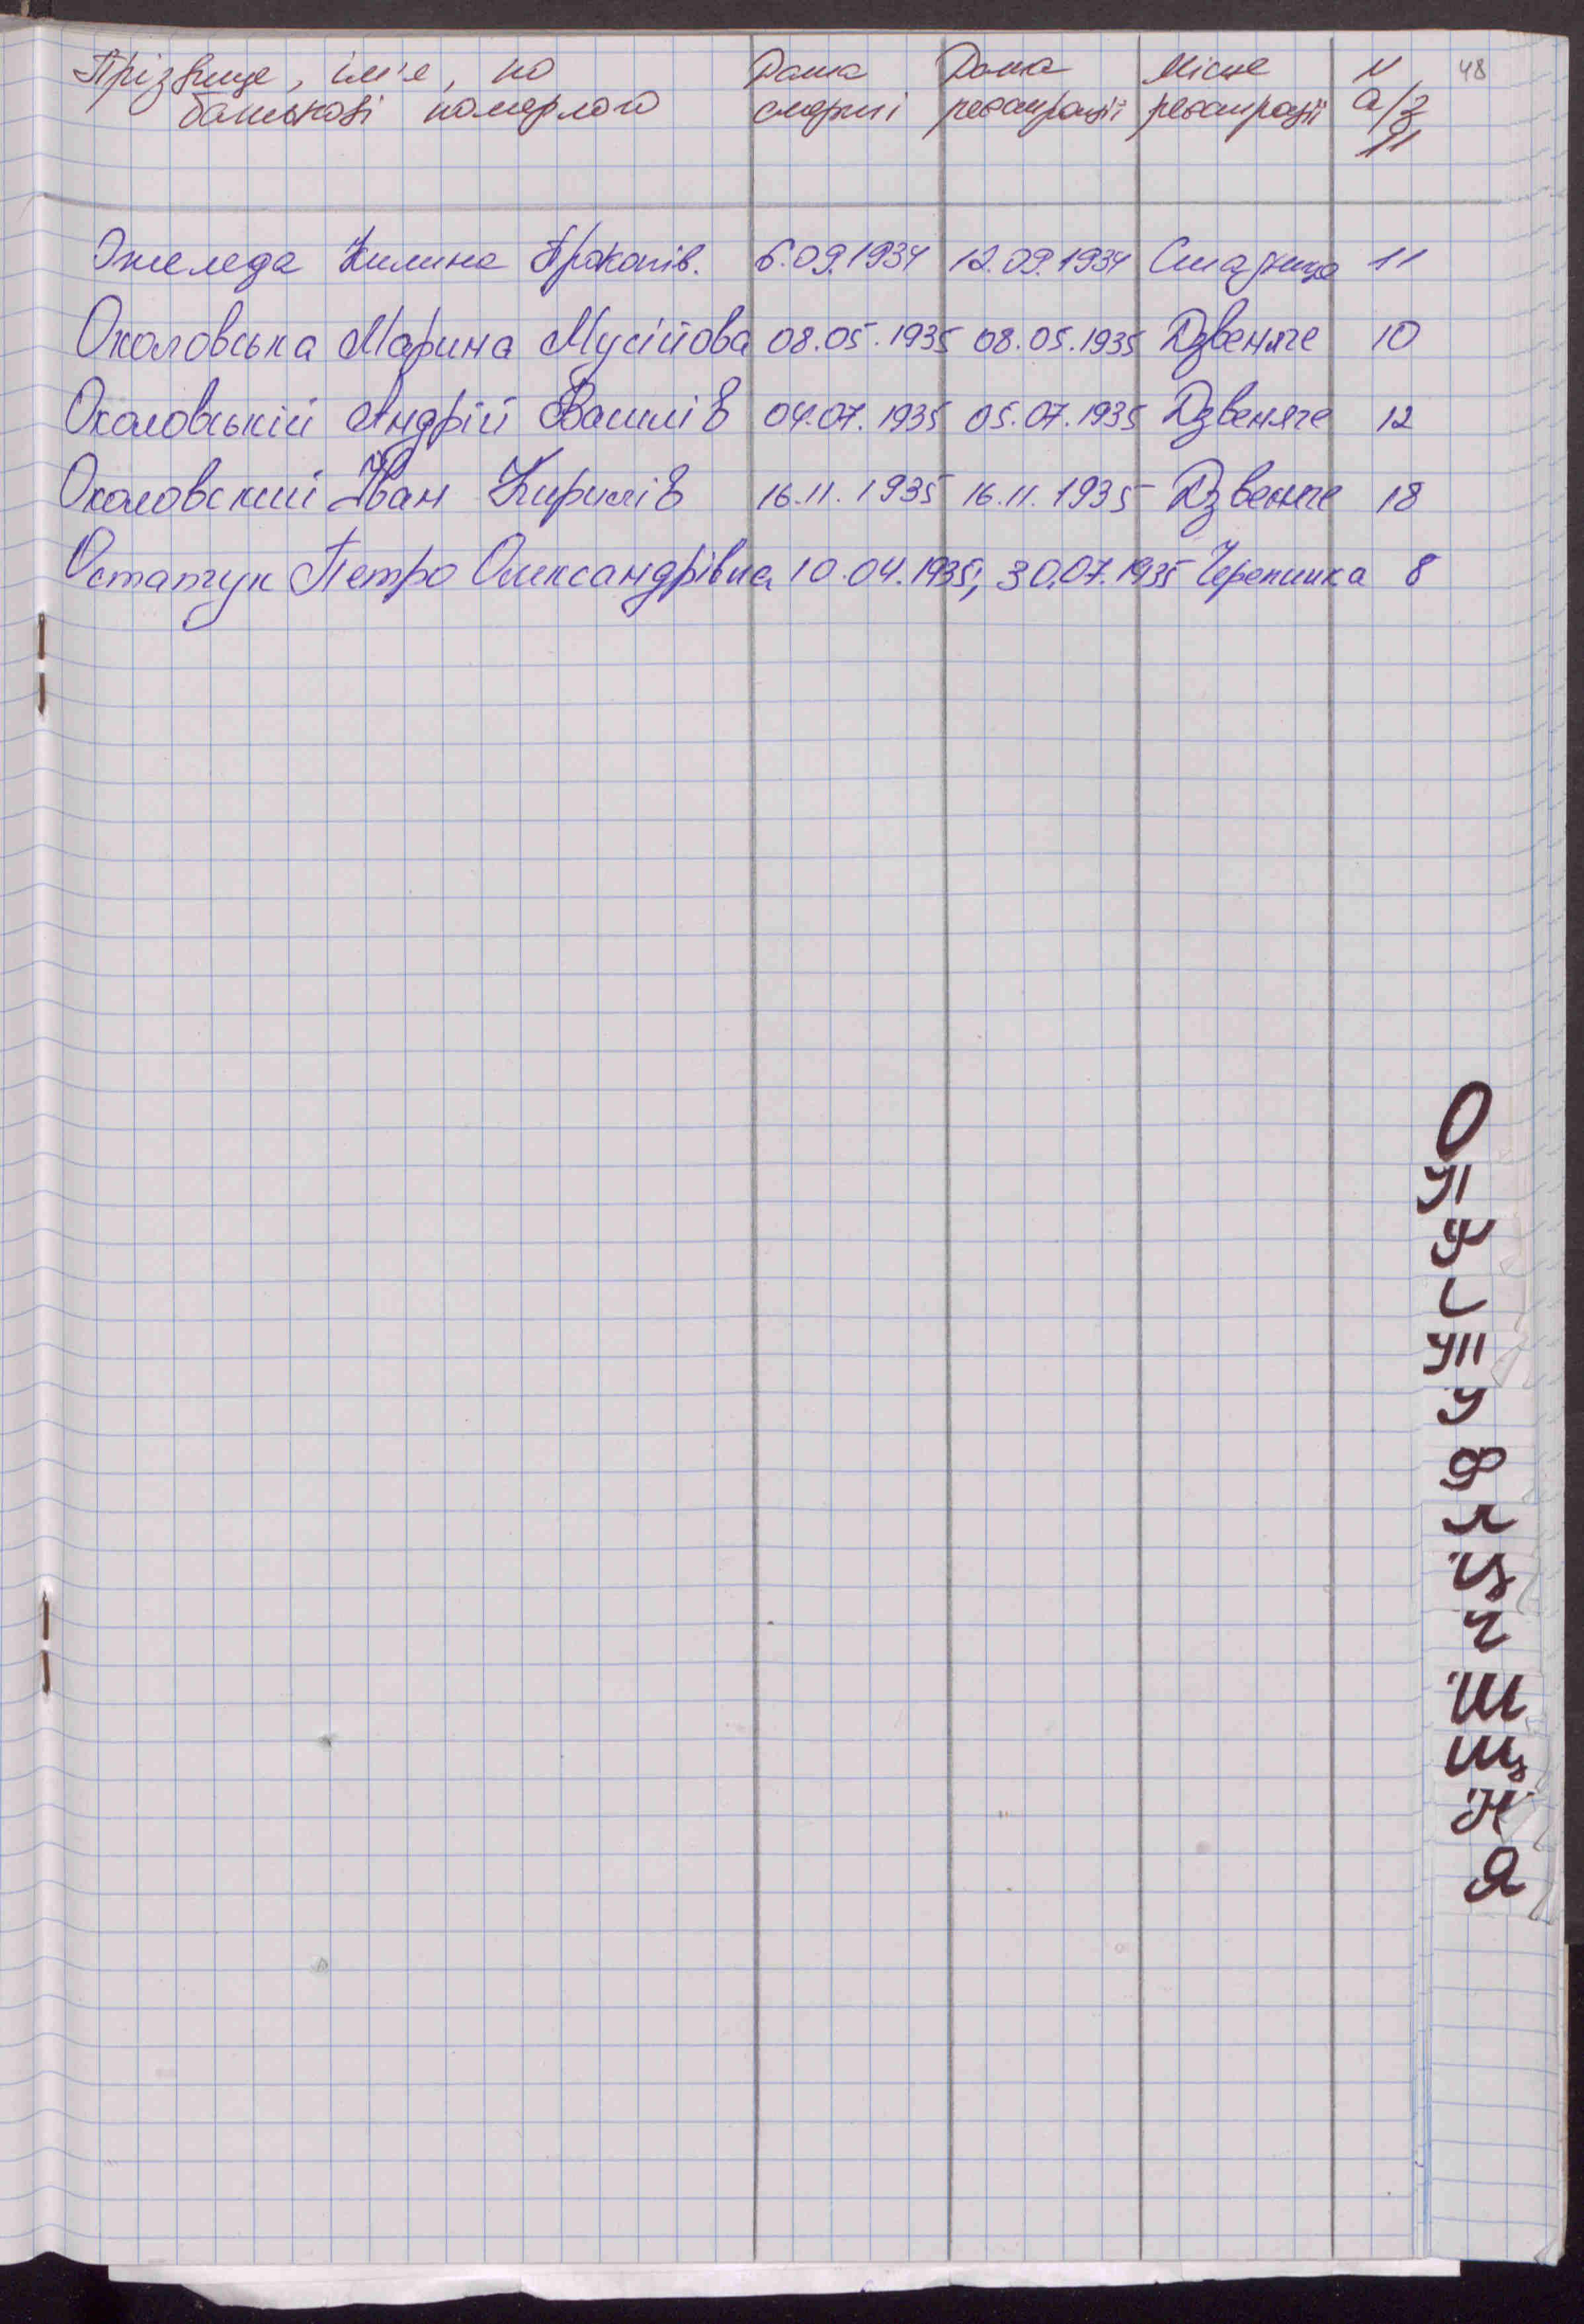 Прізвище, ім'я, по Дата Дата Місце N 48
батькові померлого смерті реєстрації реєстрації а/з
11
Ожеледа Килина Прокопів. 6.09.1934 12.09.1934 11
Околовська Марина Мусійова 08.05.1935 08.05.1935 Дзвеняче 10
Околовській Андрій Василів 04.07.1935 05.07.1935 Дзвеняче 12
Околовский Іван Кирилів 16.11.1935 16.11.1935 Дзвеняче 18
Остапчук Петро Олександрівна 10.04.1935; 30.07.1935 Черепинка 8
О
П
Р
С
Т
У
Ф
Х
Ц
Ч
Ш
Щ
Ю
Я